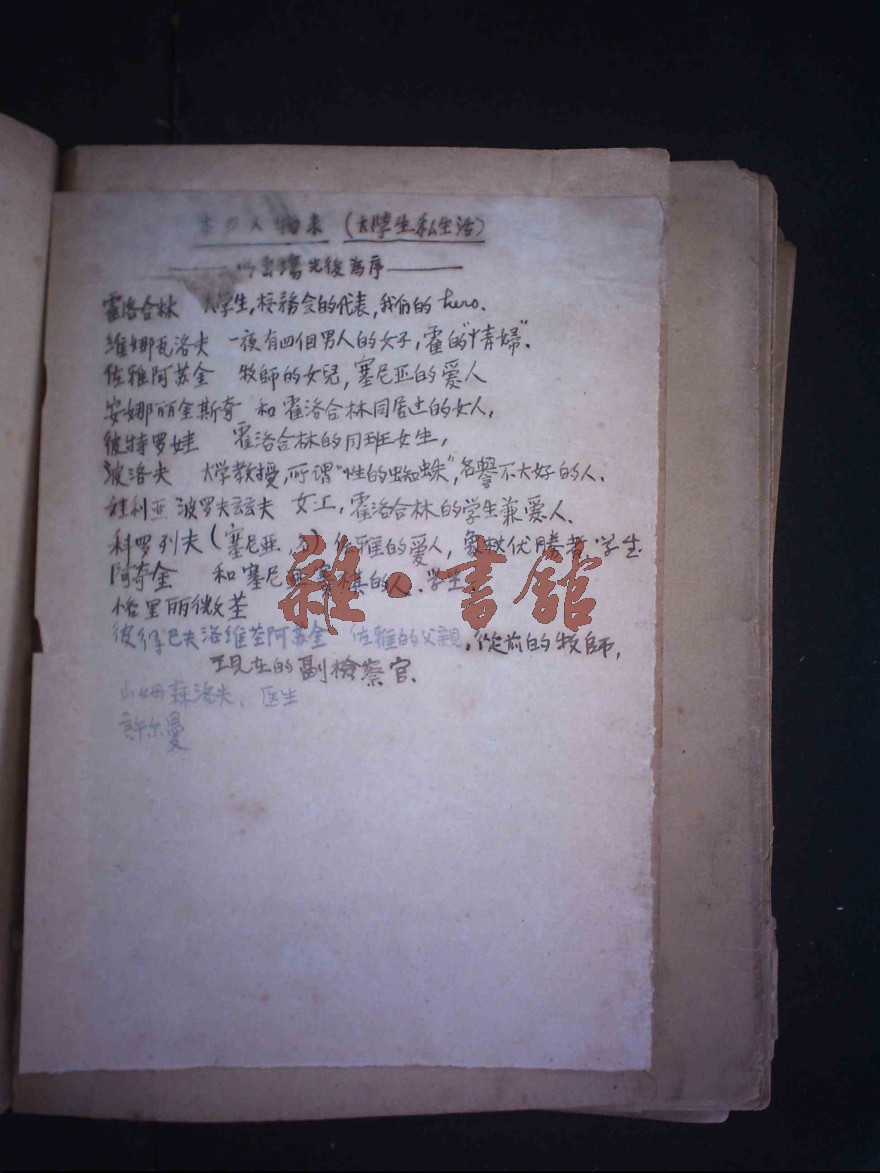 本书人物表 (大學生私生活)
——以出場先後為序——
霍洛合林 大学生,校務会的代表,我们的 hero.
維娜瓦洛夫 一夜有四個男人的女子,霍的"情婦".
佐雅阿苏金 牧師的女兒,塞尼亚的愛人
安娜丽金斯奇 和霍洛合林同居过的女人,
彼特罗娃 霍洛合林的同班女生,
波洛夫 大学教授,所谓"性的蜘蛛",名譽不大好的人.
娃利亚 波罗夫 女工,霍洛合林的学生兼愛人.
科罗列夫(塞尼亚 佐雅的愛人,象棋优勝者 学生.
阿奇金 和塞尼亚 棋的人.学生
格里丽微茎
彼得巴夫洛維茎阿苏金 佐雅的父親,從前的牧師,
現在的副檢察官.
森洛夫. 医生
許尔曼
雜·書館